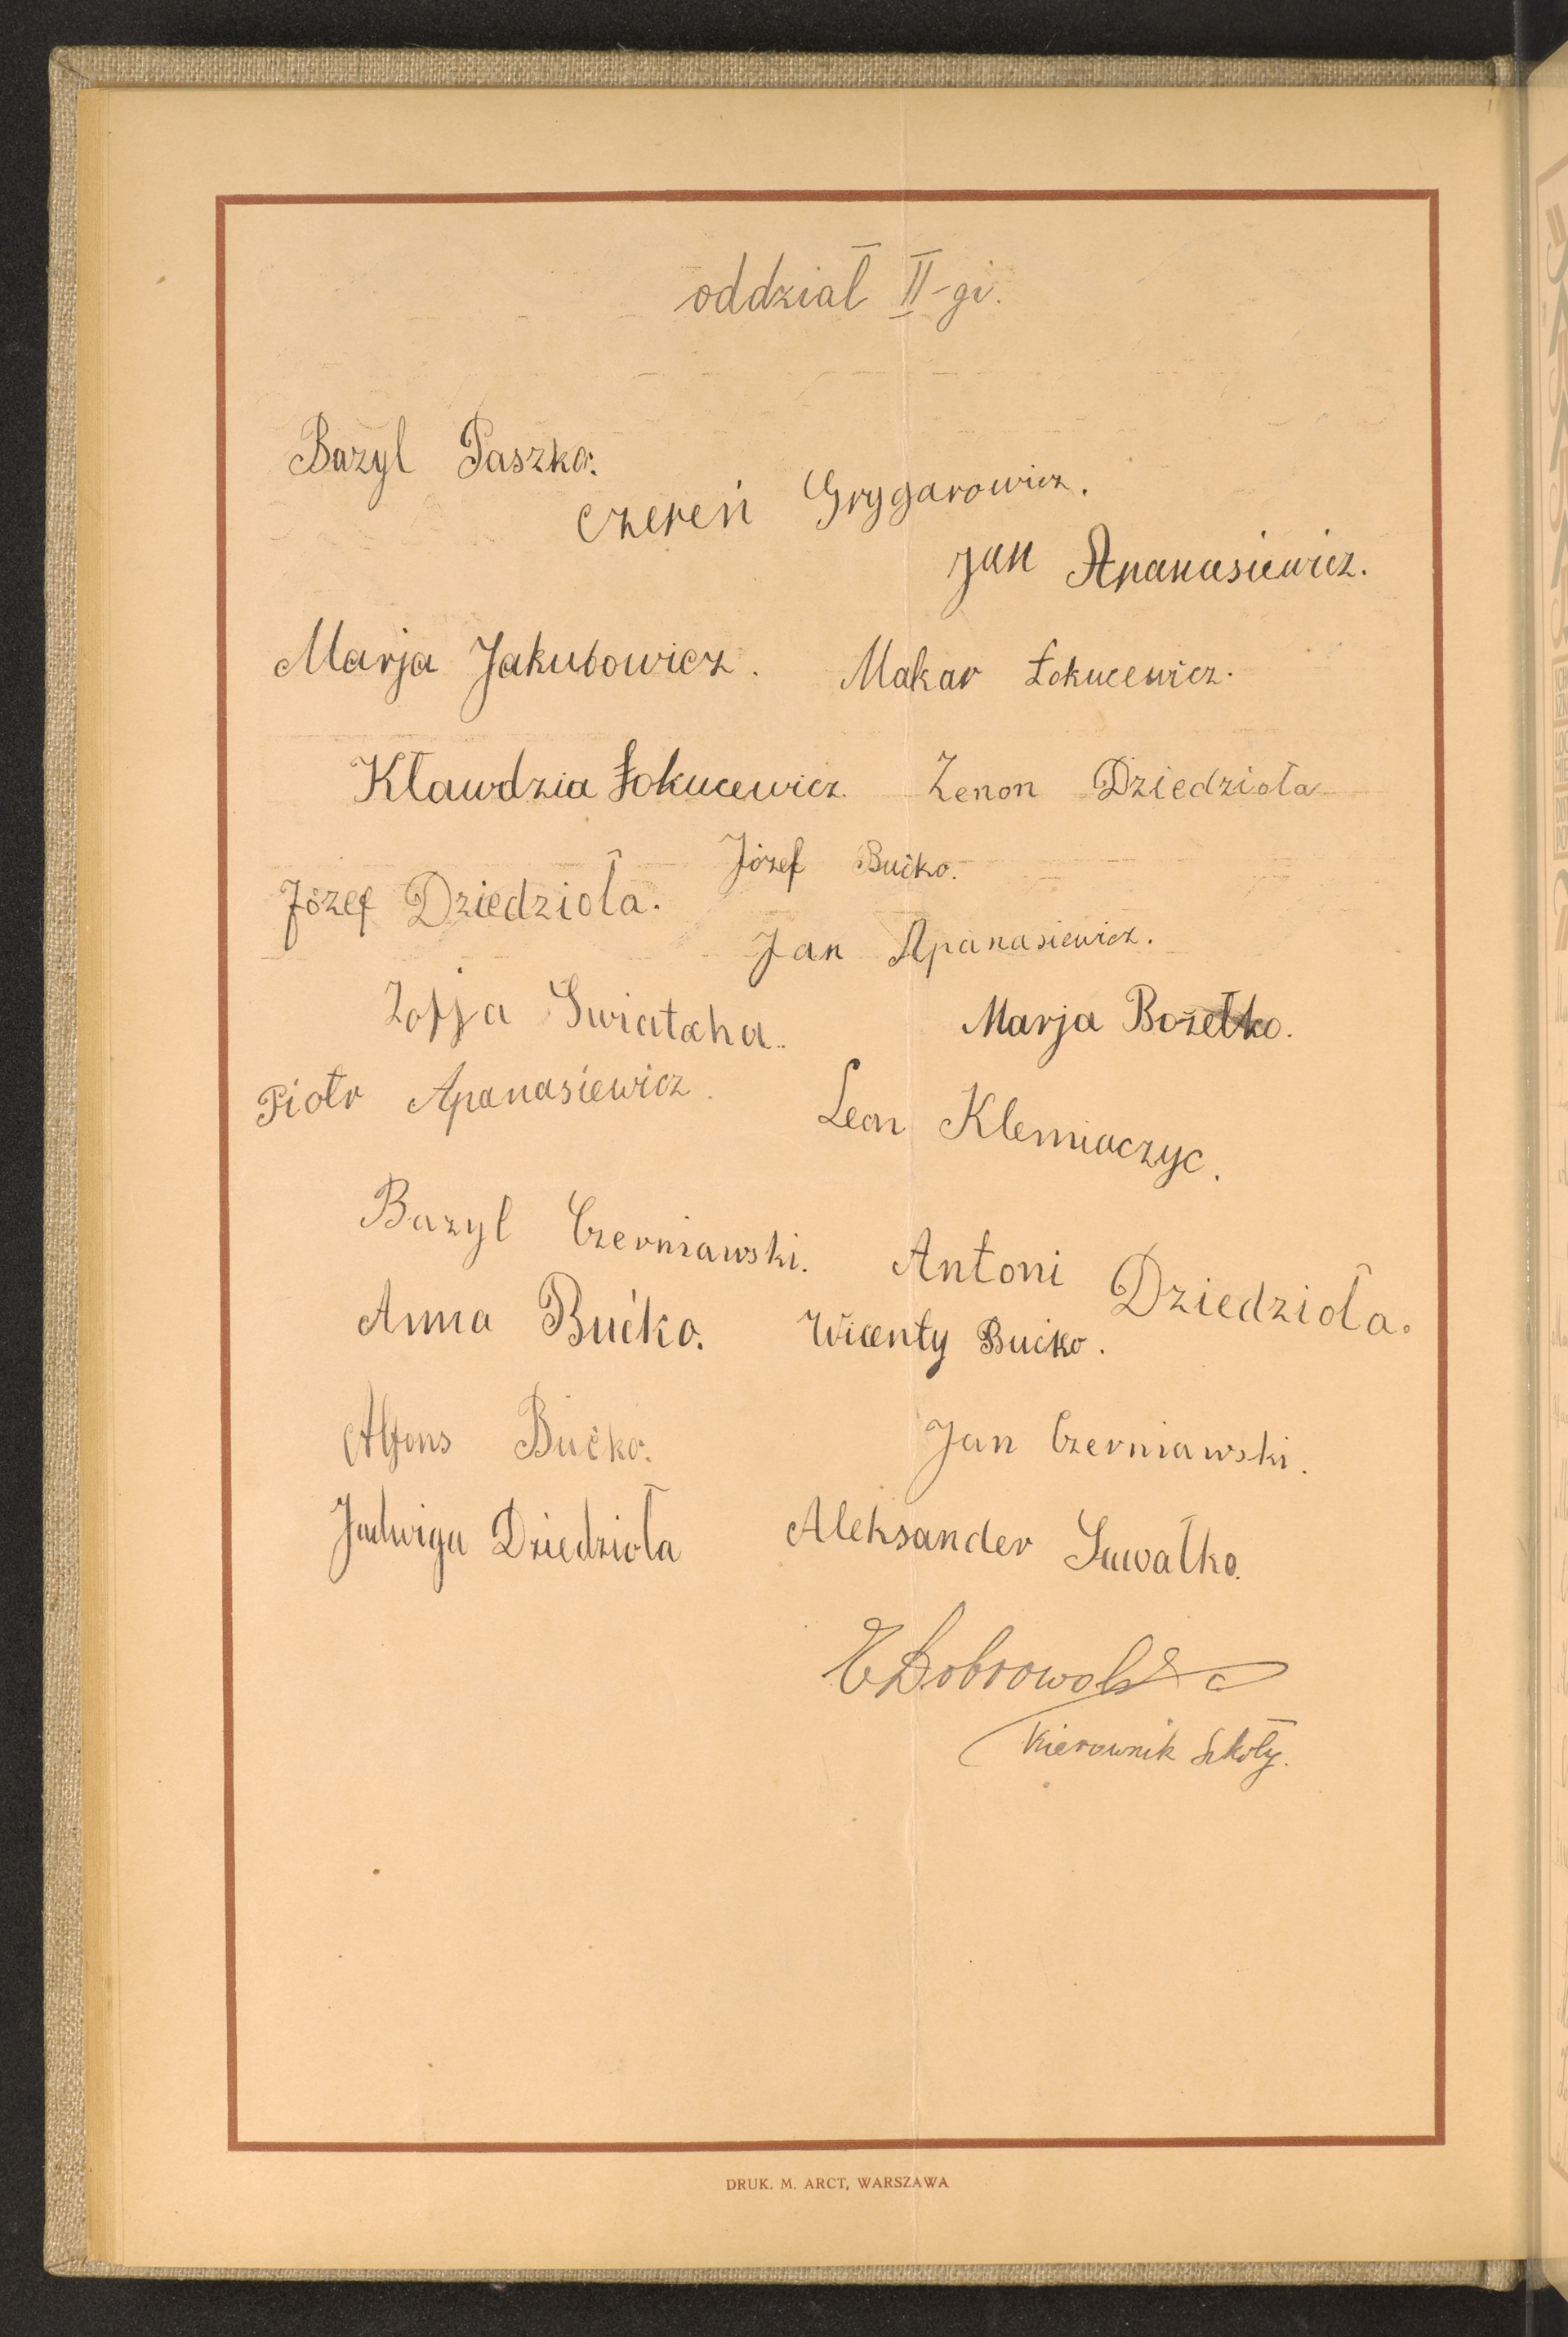 oddział II-gi.
Bazyl Paszko.
Czereń Grygarowicz.
Jan Apanasiewicz.
Marja Jakubowicz. Makar Łokucewicz.
Kławdzia Łokucewicz. Zenon Dziedzioła
Józef Bućko.
Józef Dziedzioła.
Jan Apanasiewicz.
Zofja Swiataha..
Marja Bozełko.
Piotr Apanasiewicz.
Leon Klemiaczyc.
Bazyl Czerniawski.
Antoni Dziedzioła.
Anna Bućko. Wicenty Bućko.
Alfons Bućko.
Jan Czerniawski.
Jadwiga Dziedzioła
Aleksander Suwałko.
Kierownik Szkoły.
DRUK. M. ARCT, WARSZAWA